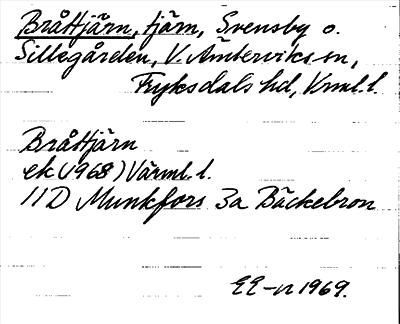 Bråttjärn, tjärn, Svensby o.
Sillegården, V. Ämterviks sn,
Fryksdals hd, Vrml. l.
Bråttjärn
ek (1968) Värml. l.
11D Munkfors 3a Bäckebron
EE-n 1969.